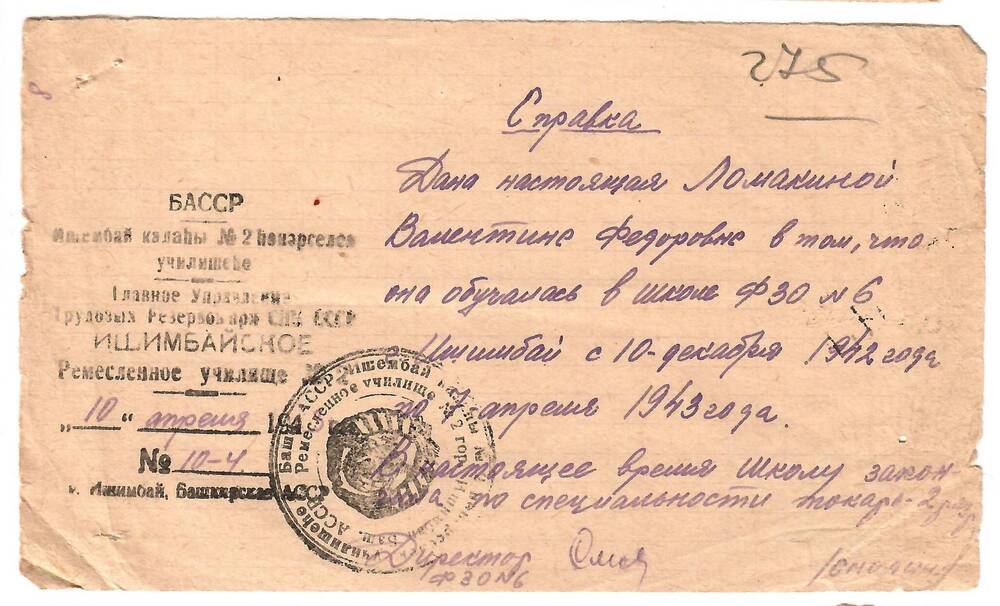 275
Справка
Дана настоящая Ломакиной
Валентине Федоровне в том, что
она обучалась в школе ФЗО №6
г. Ишимбай с 10-декабря 1942 года
по 1 апреля 1943 года.
В настоящее время школу закон-
чила по специальности токарь-2 разр
Директор
ФЗО №6
БАССР
Ишембай калаһы № 2 һөнәргелек
училищеһе
Главное Управление
Трудовых Резервов при СНК СССР
ИШИМБАЙСКОЕ
Ремесленное училище №
„10" апреля 194
№ 10-4
г. Ишимбай, Башкирская АССР
Ремесленное училище № 2
Баш. АССР